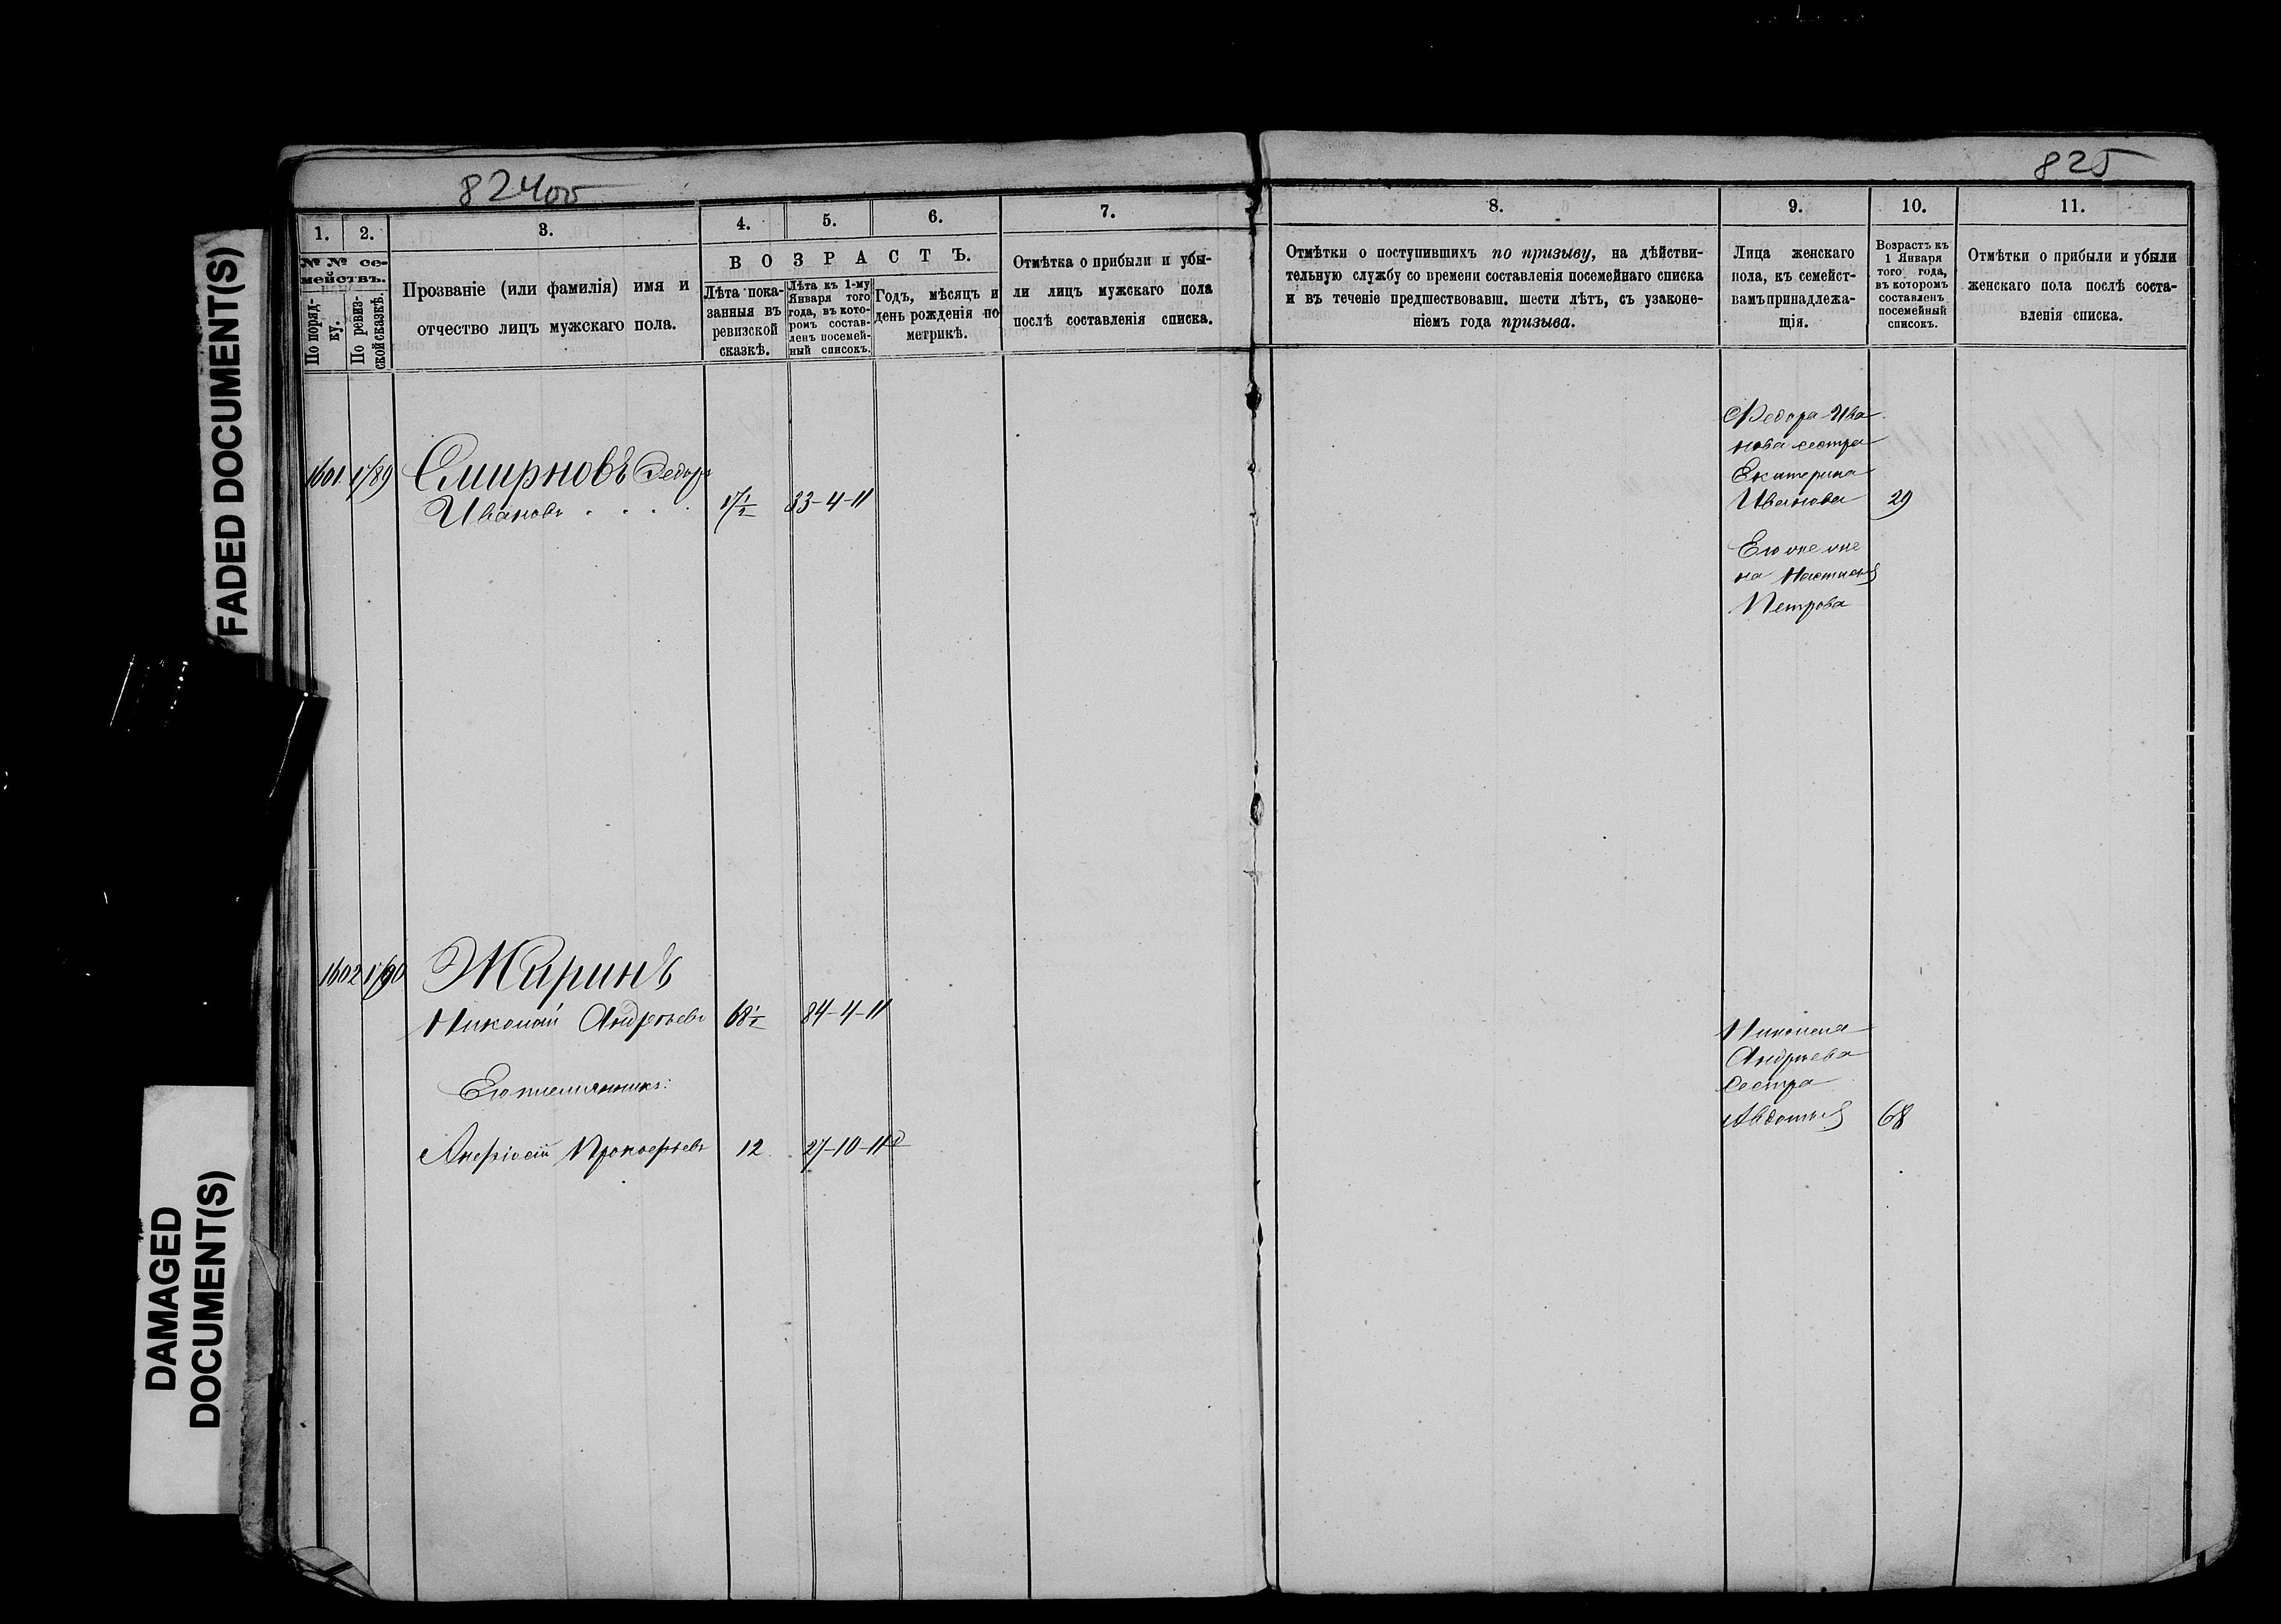 FADED DOCUMENT(S)
DAMAGED
DOCUMENT(S)
824 об
1.
2.
3.
4.
5.
6.
7.
№ № се-
мействъ.
По поряд-
ку.
По ревиз-
ской сказкѣ.
Прозваніе (или фамилія) имя и
отчество лицъ мужскаго пола.
ВОЗРАСТЪ.
Лѣта пока-
занныя въ
ревизской
сказкѣ.
Лѣта къ 1-му
Января того
года, въ кото-
ромъ состав-
ленъ посемей-
ный списокъ.
Годъ, мѣсяцъ и
день рожденія по
метрикѣ.
Отмѣтка о прибыли и убы-
ли лицъ мужскаго пола
послѣ составленія списка.
1601
Смирновъ Федоръ
Ивановъ
17½
33-4-11
1602
Жиринъ
Николай Андреевъ
68½
84-4-11
Его племянникъ:
Прокофьевъ
12
27-10-11
825
8.
9.
10.
11.
Отмѣтки о поступившихъ по призыву, на дѣйстви-
тельную службу со времени составленія посемейнаго списка
и въ теченіе предшествовавш. шести лѣтъ, съ узаконе-
ніемъ года призыва.
Лица женскаго
пола, къ семейст-
вамъ принадлежа-
щія.
Возрастъ къ
1 Января
того года,
въ которомъ
составленъ
посемейный
списокъ.
Отмѣтки о прибыли и убыли
женскаго пола послѣ соста-
вленія списка.
Федора Ива
нова сестра
Екатерина
Иванова
29
Его же же
на
Петрова
Николая
Андреева
сестра
Авдотья
68